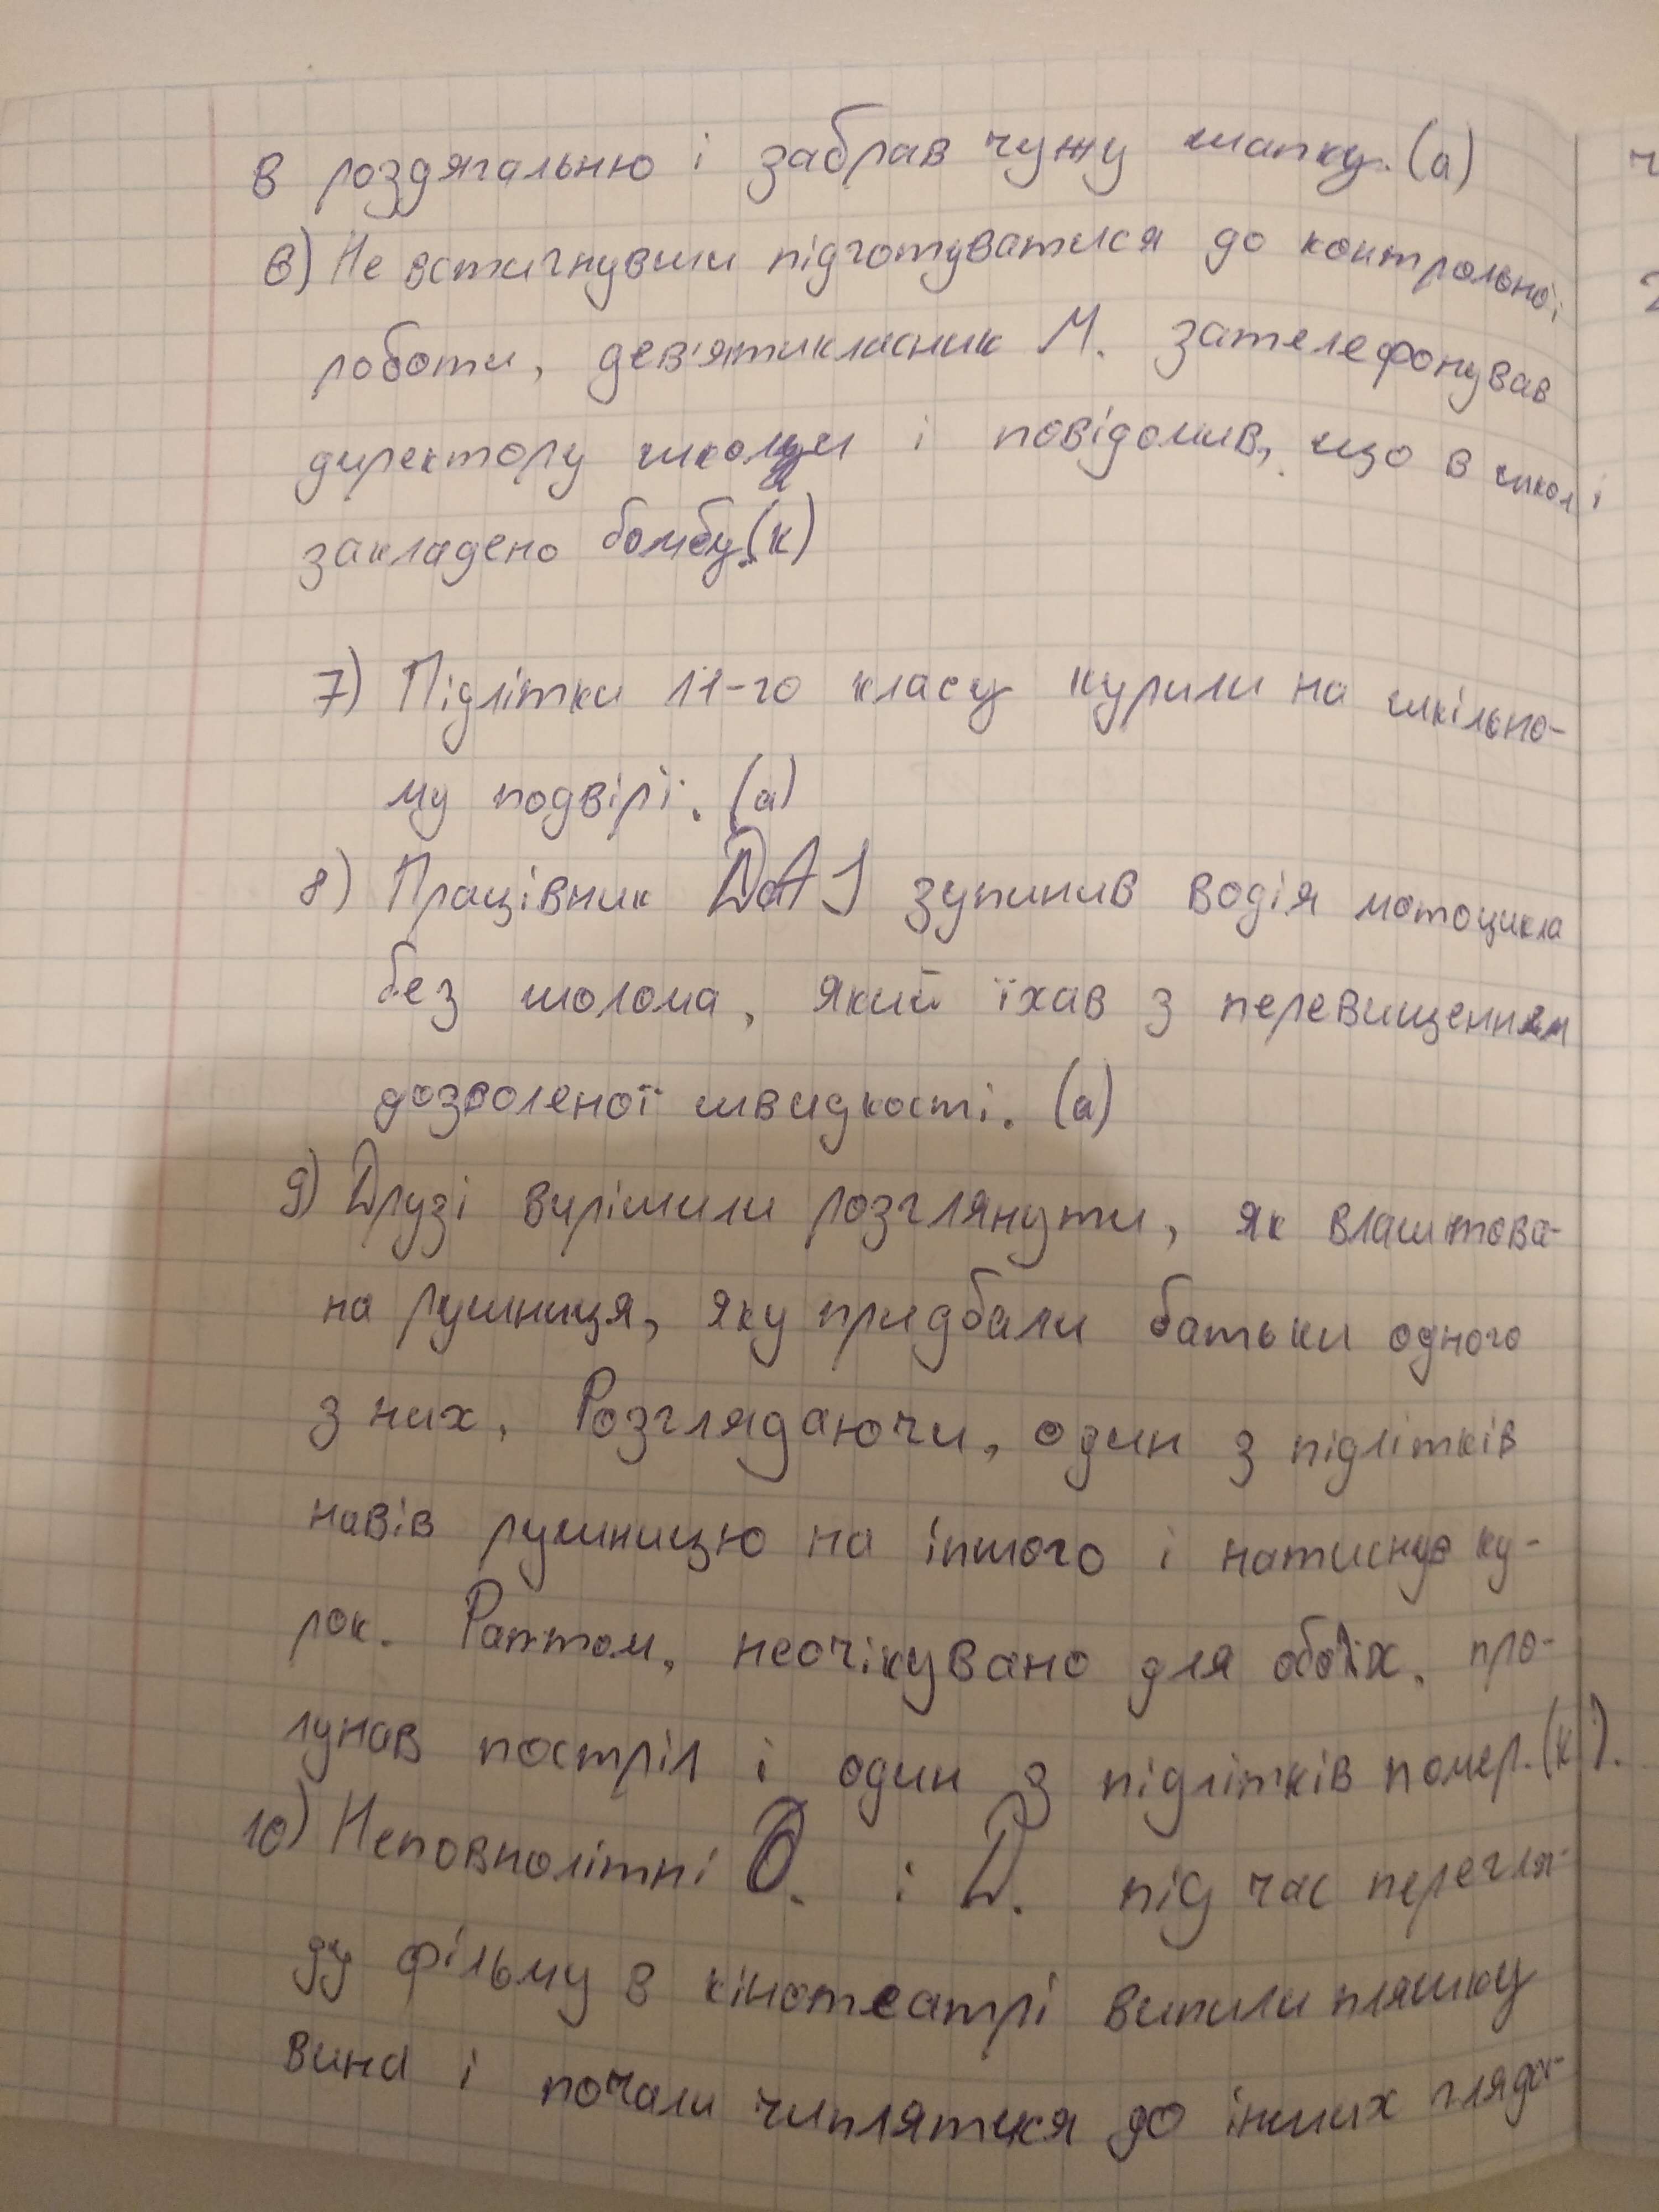 в роздягальню і забрав чужу шапку. (а)
6) Не встигнувши підготуватися до контрольної
роботи, дев'ятикласник М. зателефонував
директору школи і повідомив, що в школі
закладено бомбу. (к)
7) Підлітки 11-го класу курили на шкільно-
му подвірї. (а)
8) Працівник ДАІ зупинив водія мотоцикла
без шолома, який їхав з перевищенням
дозволеної швидкості. (а)
9) Друзі вирішили розглянути, як влаштова-
на рушниця, яку придбали батьки одного
з них. Розглядаючи, один з підлітків
навів рушницю на іншого і натиснув ку-
рок. Раптом, неочікувано для обоїх, про-
лунав постріл і один з підлітків помер. (к).
10) Неповнолітні О. і Д. під час перегля-
ду фільму в кінотеатрі випили пляшку
вина і почали чиплятися до інших гляда-